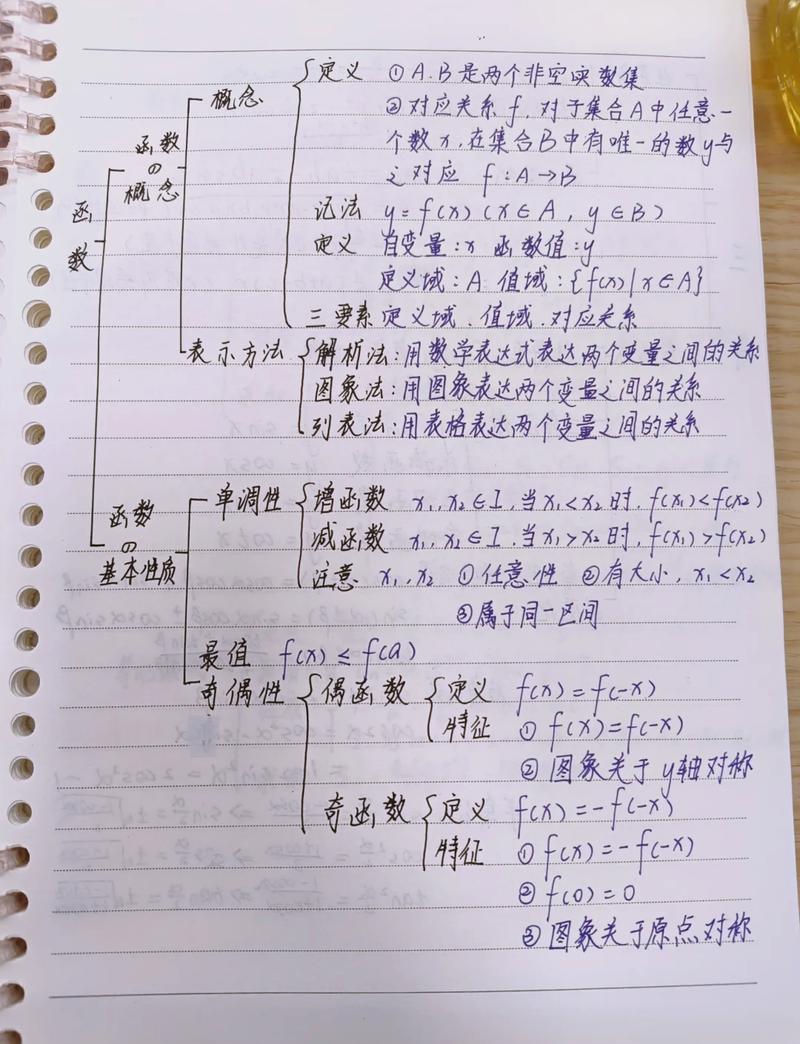 函数
函数の概念
概念
定义 ① A.B是两个非空实数集
② 对应关系f,对于集合A中任意一
个数x,在集合B中有唯一的数y与
之对应 f:A→B
记法 y=f(x)(x∈A,y∈B)
定义 自变量:x 函数值:y
定义域:A 值域:{f(x)|x∈A}
三要素 定义域、值域、对应关系
表示方法
解析法:用数学表达式表达两个变量之间的关系
图象法:用图象表达两个变量之间的关系
列表法:用表格表达两个变量之间的关系
函数の基本性质
单调性
增函数 x₁,x₂∈I,当x₁<x₂时,f(x₁)<f(x₂)
减函数 x₁,x₂∈I,当x₁>x₂时,f(x₁)>f(x₂)
注意 x₁,x₂ ①任意性 ②有大小,x₁<x₂
③属于同一区间
最值 f(x)≤f(a)
奇偶性
偶函数
定义 f(x)=f(-x)
特征 ① f(x)=f(-x)
② 图象关于y轴对称
奇函数
定义 f(x)=-f(-x)
特征 ① f(x)=-f(-x)
② f(0)=0
③ 图象关于原点对称